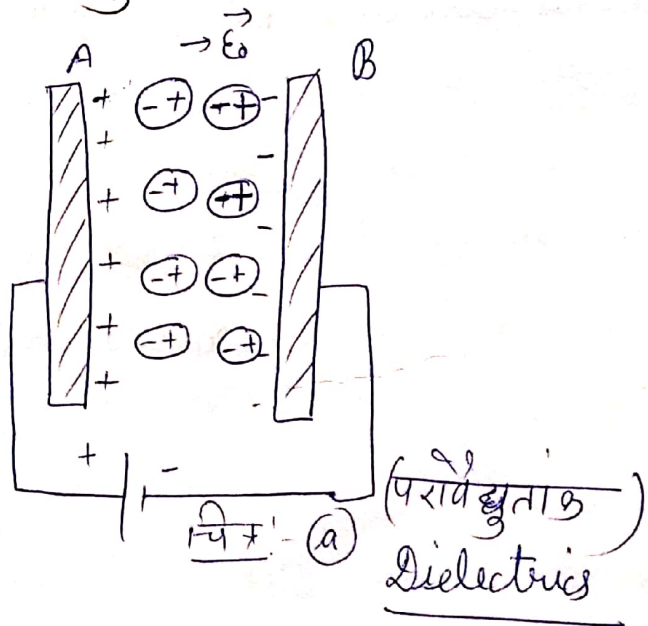 → E₀
A
B
+ -+ ++ -
+ -
+ -+ ++ -
+ -+ -+ -
+ -+ -+ -
+ -
+ -
चित्र :- (a)
(परावैद्युतांक)
Dielectrics